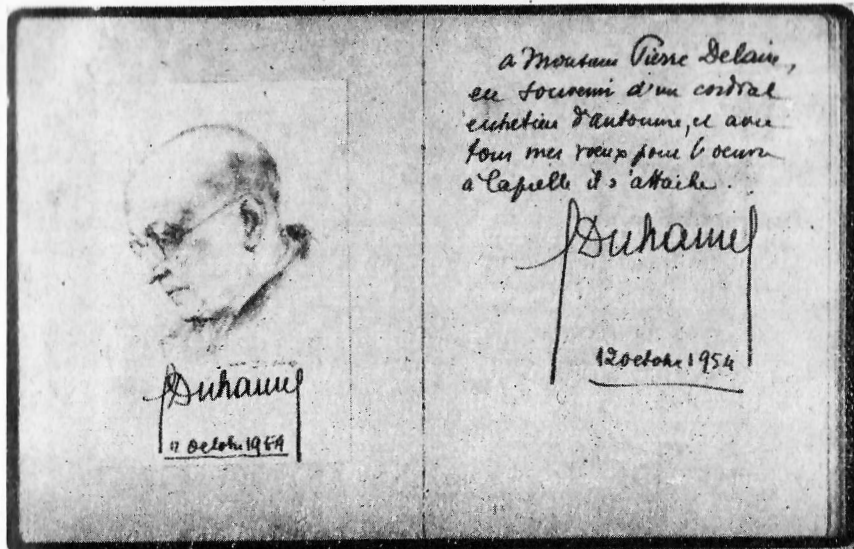 Duhamel
12 octobre 1954
à Monsieur Pierre Delaire,
en souvenir d'un cordial
entretien d'automne, et avec
tous mes vœux pour l'œuvre
à laquelle il s'attache.
Duhamel
12 octobre 1954